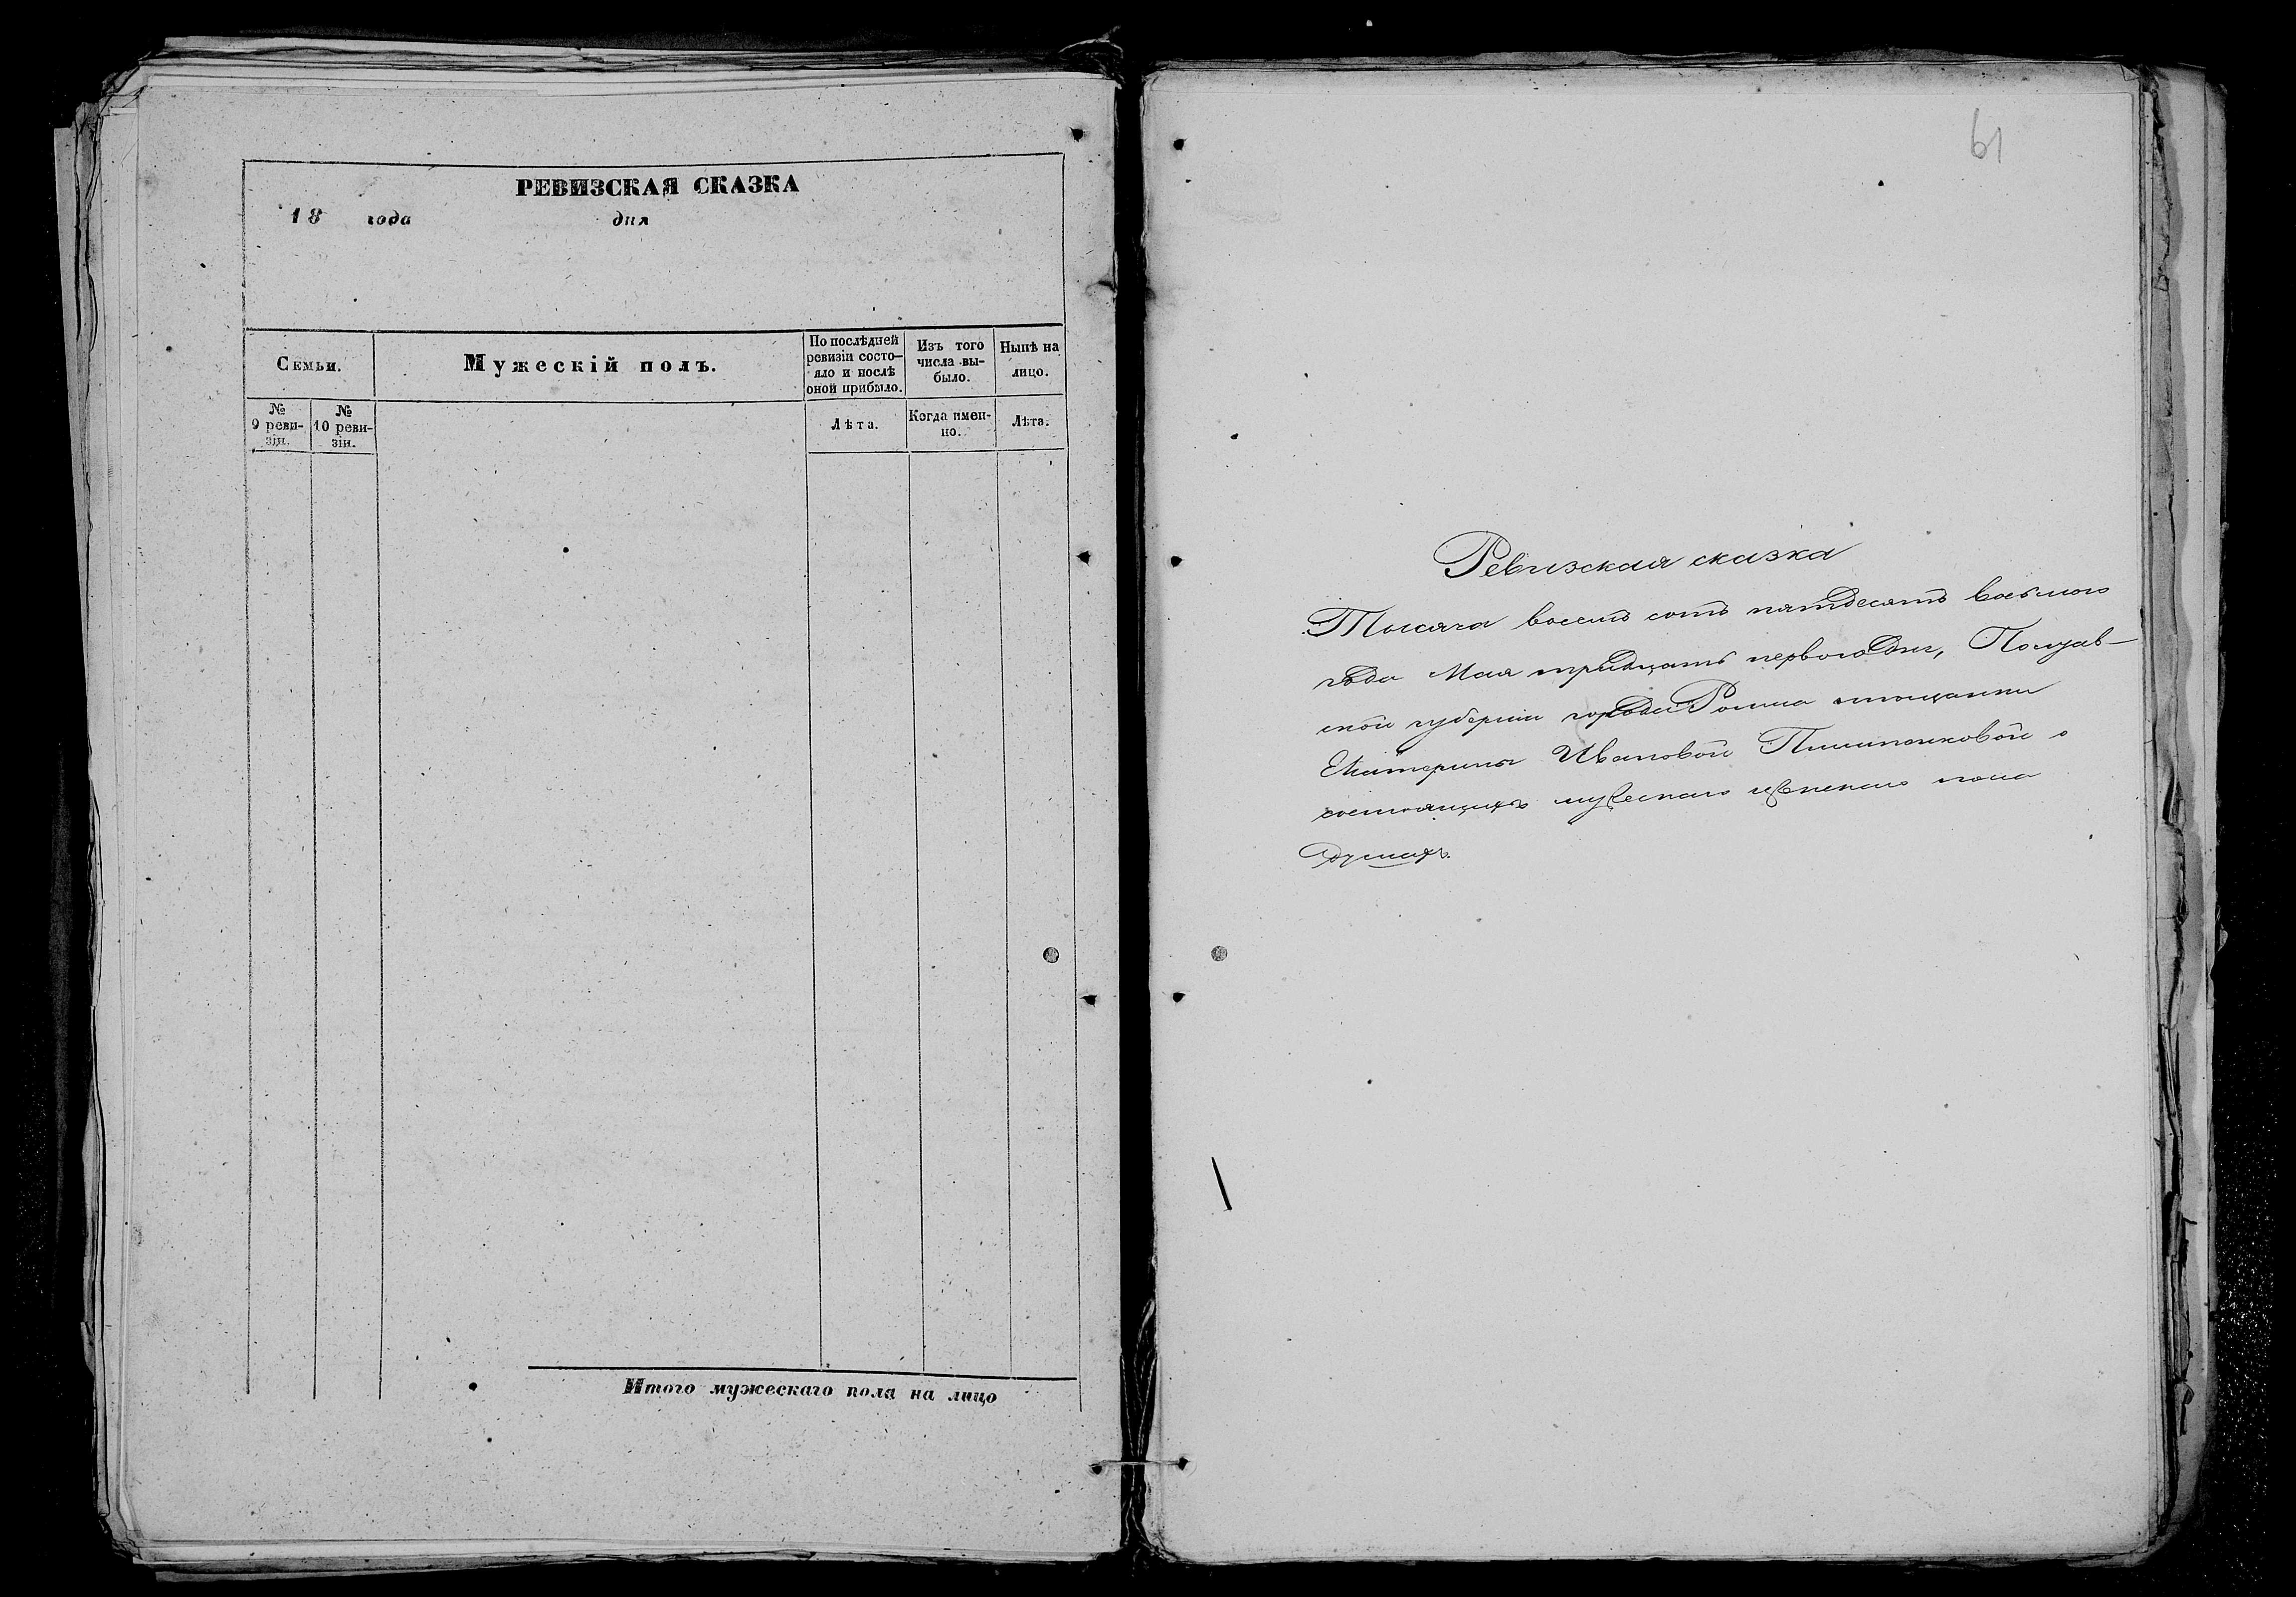 РЕВИЗСКАЯ СКАЗКА
18 года дня
Семьи.
Мужескій полъ.
По послѣдней
ревизіи состо-
яло и послѣ
оной прибыло.
Изъ того
числа вы-
было.
Нынѣ на
лицо.
№
9 реви-
зіи.
№
10 реви-
зіи.
Лѣта.
Когда имен-
но.
Лѣта.
Итого мужескаго пола на лицо
61
Ревизская сказка
Тысяча восемь сотъ пятдесятъ восьмого
года Мая тридцать первого дня, Полтав-
ской губерніи города Ромна мѣщанки
Екатерины Ивановой о
состоящихъ мужеска и женска пола
душахъ.